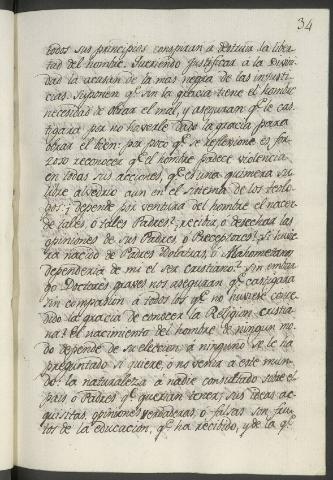 34
todos sus principios conspiran a destruir la liber-
tad del hombre. Queriendo justificar à la Divini-
dad la acusan de la mas negra de las injusti-
cias. Suponen q.e sin la gracia tiene el hombre
necesidad de obrar el mal, y aseguran q.e le cas-
tigara por no haverle dado la gracia para
obrar el bien: por poco q.e se reflexione es for-
zoso reconocer q.e el hombre padece violencia
en todas sus acciones, q.e es una quimera su
libre alvedrio aun en el sistema de los teolo-
gos: ¿depende por ventura del hombre el nacer
de tales, ó tales Padres? ¿recibir, ó desechar las
opiniones de sus Padres, ó Preceptores? ¿Si huvie-
ra nacido de Padres Ydolatras, ó Mahometanos
dependeria de mi el ser cristiano? Sin embar-
go Doctores graves nos aseguran q.e castigará
sin compasión à todos los q.e no huviese conce-
dido la gracia de conocer la Religion cristia-
na? El nacimiento del hombre de ningun mo-
do depende de su eleccion: a ninguno se le ha
preguntado si quiere, ó no venir a este mun-
do: la naturaleza à nadie consultado sobre el
pais, ó Padres q.e querian tener; sus ideas ad-
quisitas, opiniones verdaderas, ó falsas son fru-
tos de la educacion, q.e ha recibido, y de la q.e